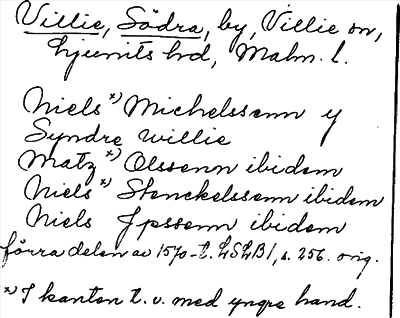 Villie, Södra, by, Villie sn,
Ljunits hd, Malm. l.
Niels x) Michelssenn y
Syndre Willie
Matz x) Olssenn ibidem
Niels x) Stenckelssenn ibidem
Niels Jpssenn ibidem
förra delen av 1570-t. LSLB1, s. 256. orig.
x) I kanten t. v. med yngre hand.